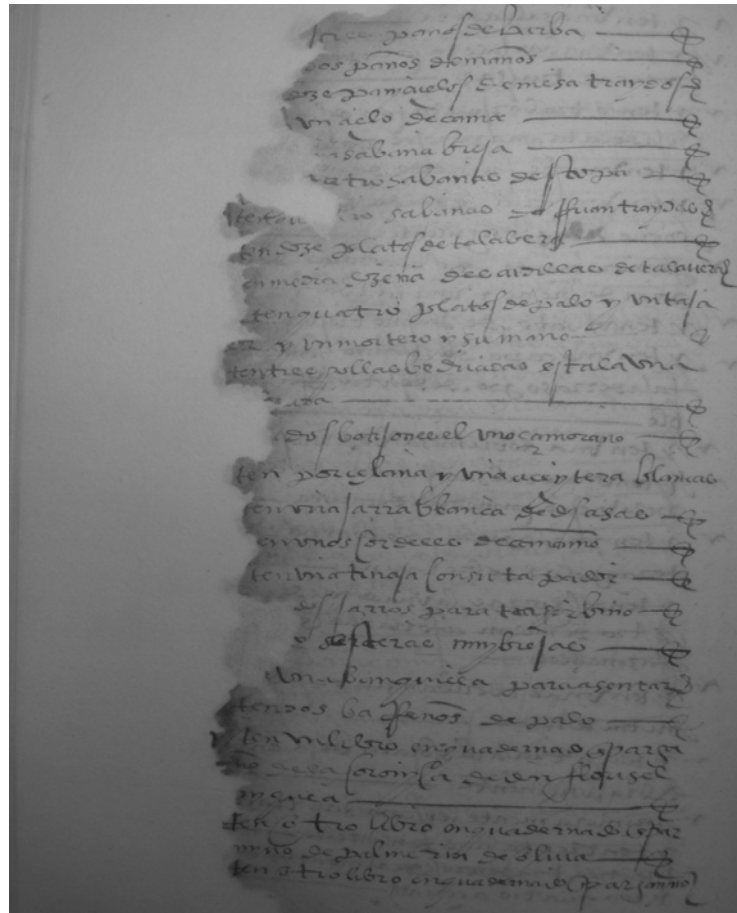 tres paños de barba
dos paños de manos
doze pañiçuelos de mesa traydos
un çielo de cama
sabana bieja
quatro sabanas de stopa
yten quatro sabanas de ruan traydas
yten doze platos de talabera
media dozena de escudillas de talavera
yten quatro platos de palo y un taja
or y un mortero y su mano
yten tres ollas bedriadas esta la una
dos botijones el uno çamorano
yten porçelana y una açeytera blancas
yten una jarra blanca de dos asas
unos cordeles de cañamo
yten una tinaja con su tapador
dos jarros para trasor bino
esteras muy biejas
una banquica para sentar
yten dos bafenos de palo
yten un libro enquadernado en parga
mino de la coronica de don florisel
de niquea
yten otro libro enquadernado en par
mino de palmerin de oliva
yten otro libro enquadernado en pargamino